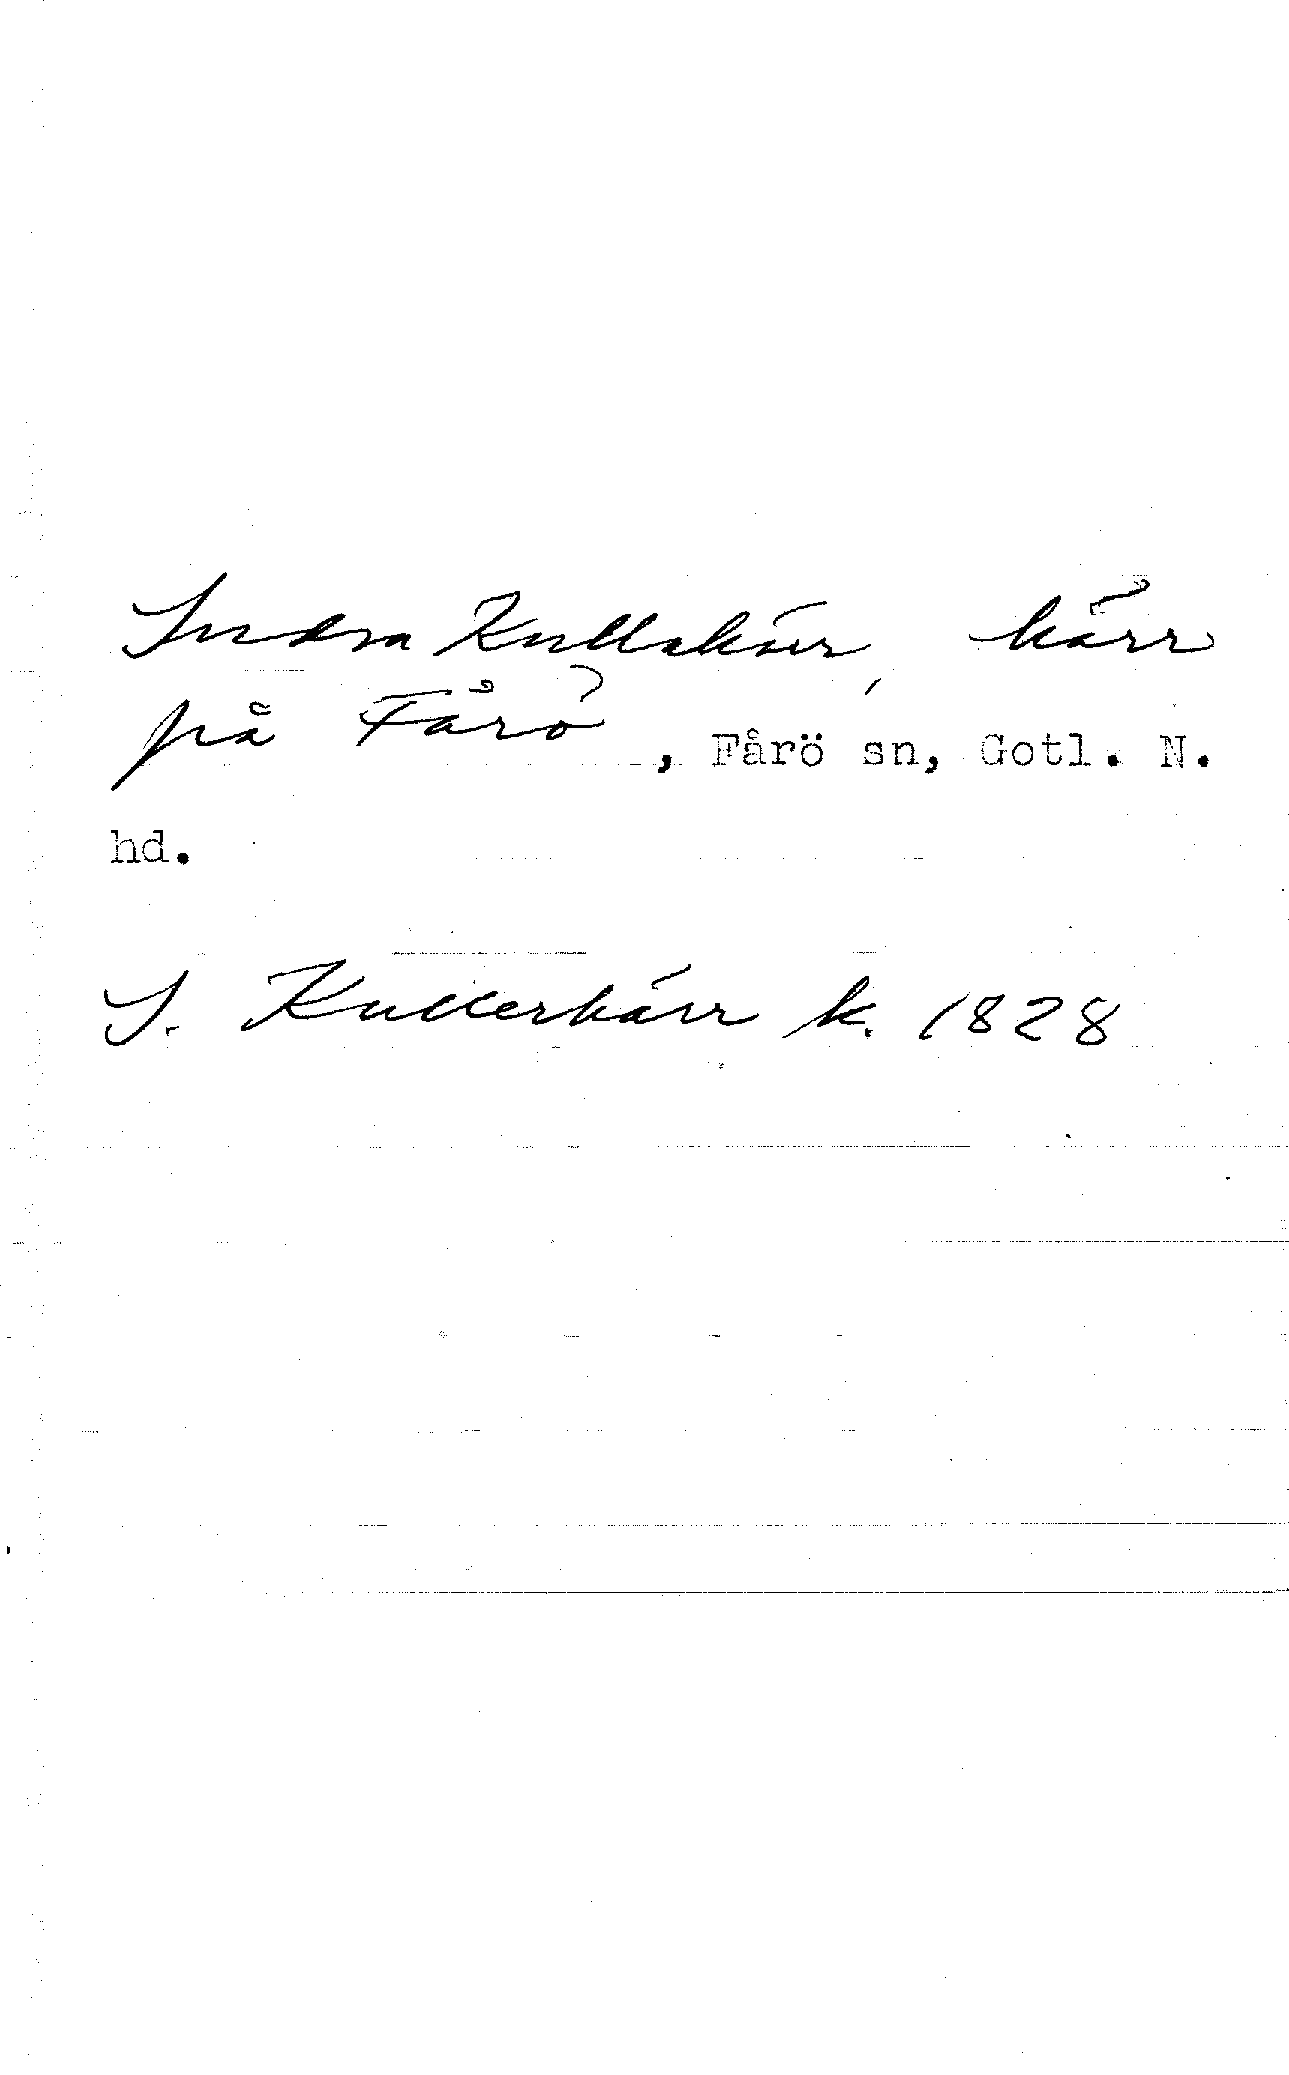 Sudra Kullakärr, kärr
på Fårö, Fårö sn, Gotl. N.
hd.
S. Kullerkärr k. 1828